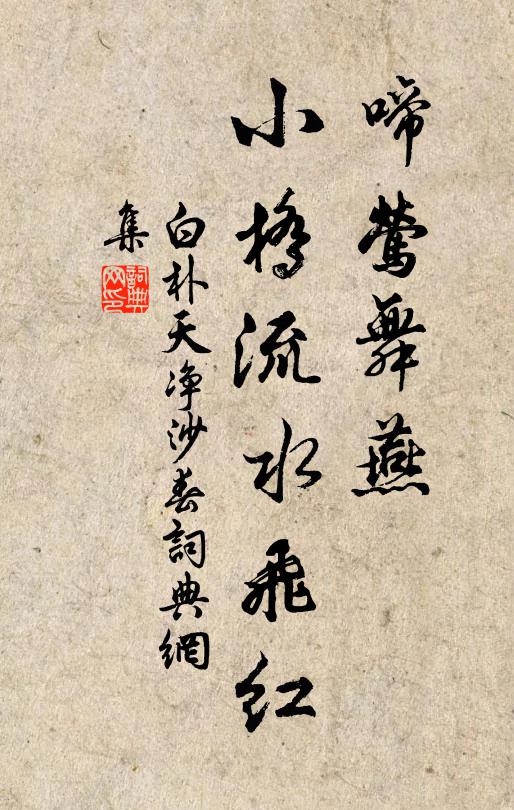 啼鶯舞燕
小橋流水飛紅
白朴天净沙春詞典網
集
詞典
网印